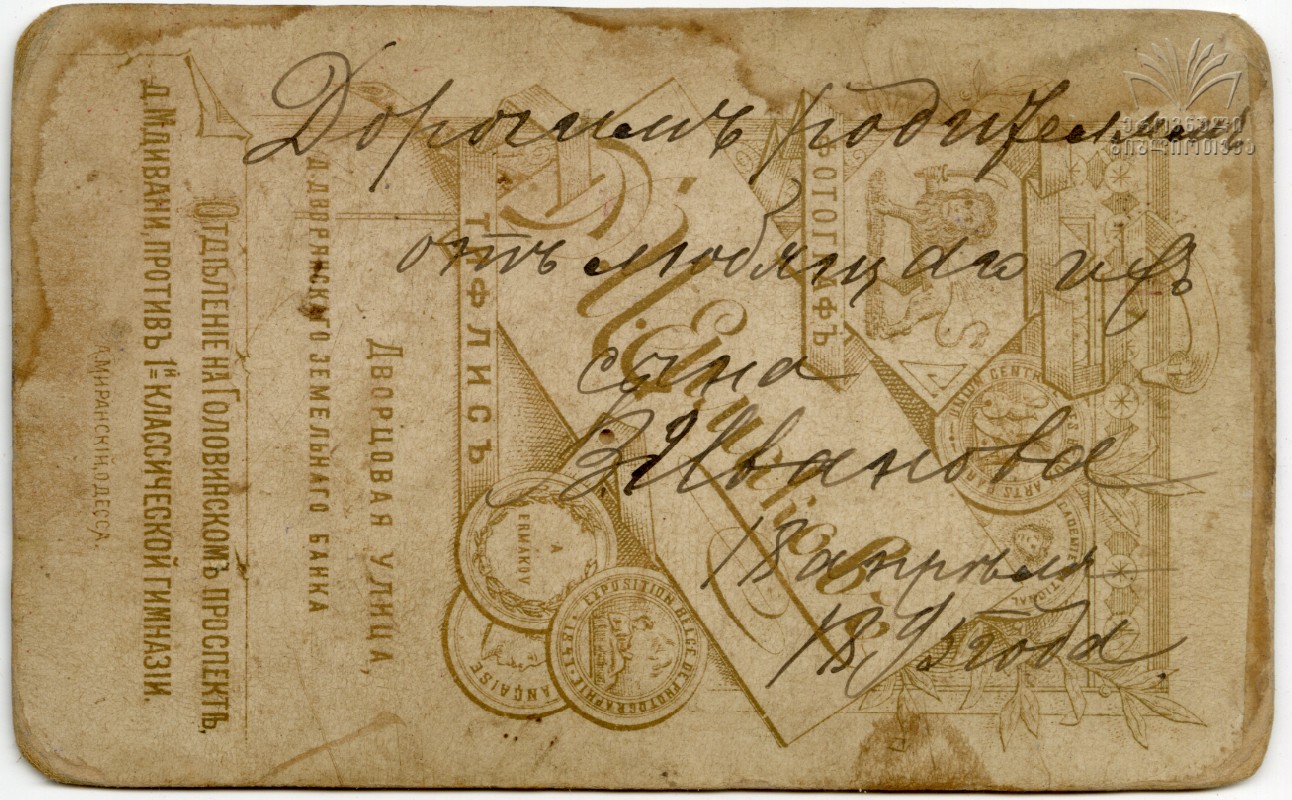 Дорогимъ родителямъ
отъ любящаго ихъ
сына
Иванова
18 апрѣля
1895 года
ФОТОГРАФЪ
ТИФЛИСЪ
ДВОРЦОВАЯ УЛИЦА,
Д. ДВОРЯНСКАГО ЗЕМЕЛЬНАГО БАНКА
ОТДѢЛЕНІЕ НА ГОЛОВИНСКОМЪ ПРОСПЕКТѢ,
Д. МДИВАНИ, ПРОТИВЪ 1й КЛАССИЧЕСКОЙ ГИМНАЗІИ.
А. МИРАНСКІЙ, ОДЕССА.
A
ERMAKOV
EXPOSITION BELGE DE PHOTOGRAPHIE
UNION CENTR
ARTS
ეროვნული
ბიბლიოთეკა